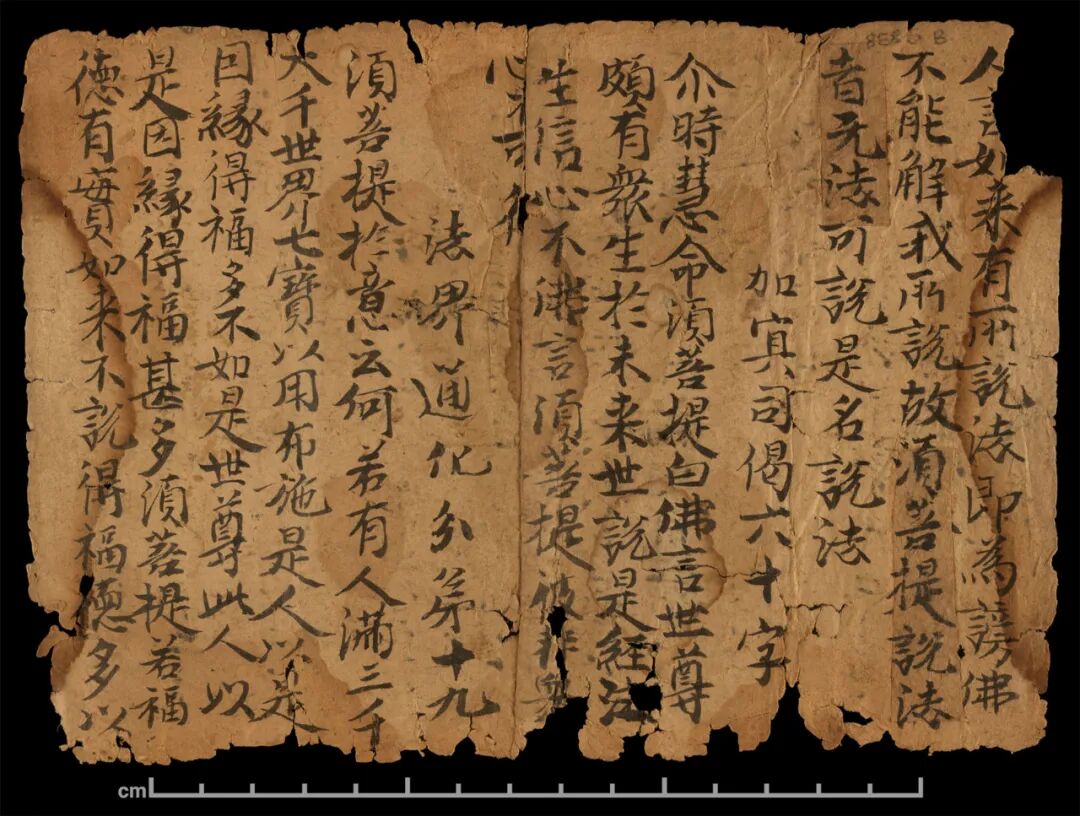 人言如来有所説法即為謗佛
不能解我所説故湏菩提説法
者无法可説是名説法
加冥司偈六十字
尒時慧命湏菩提白佛言世尊
頗有衆生於未来世説是經法
生信心不佛言湏菩提彼非衆
心不可得
法界通化分苐十九
湏菩提於意云何若有人滿三千
大千世界七寶以用布施是人以是
因縁得福多不如是世尊此人以
是因縁得福甚多湏菩提若福
徳有實如来不説得福徳多以
cm